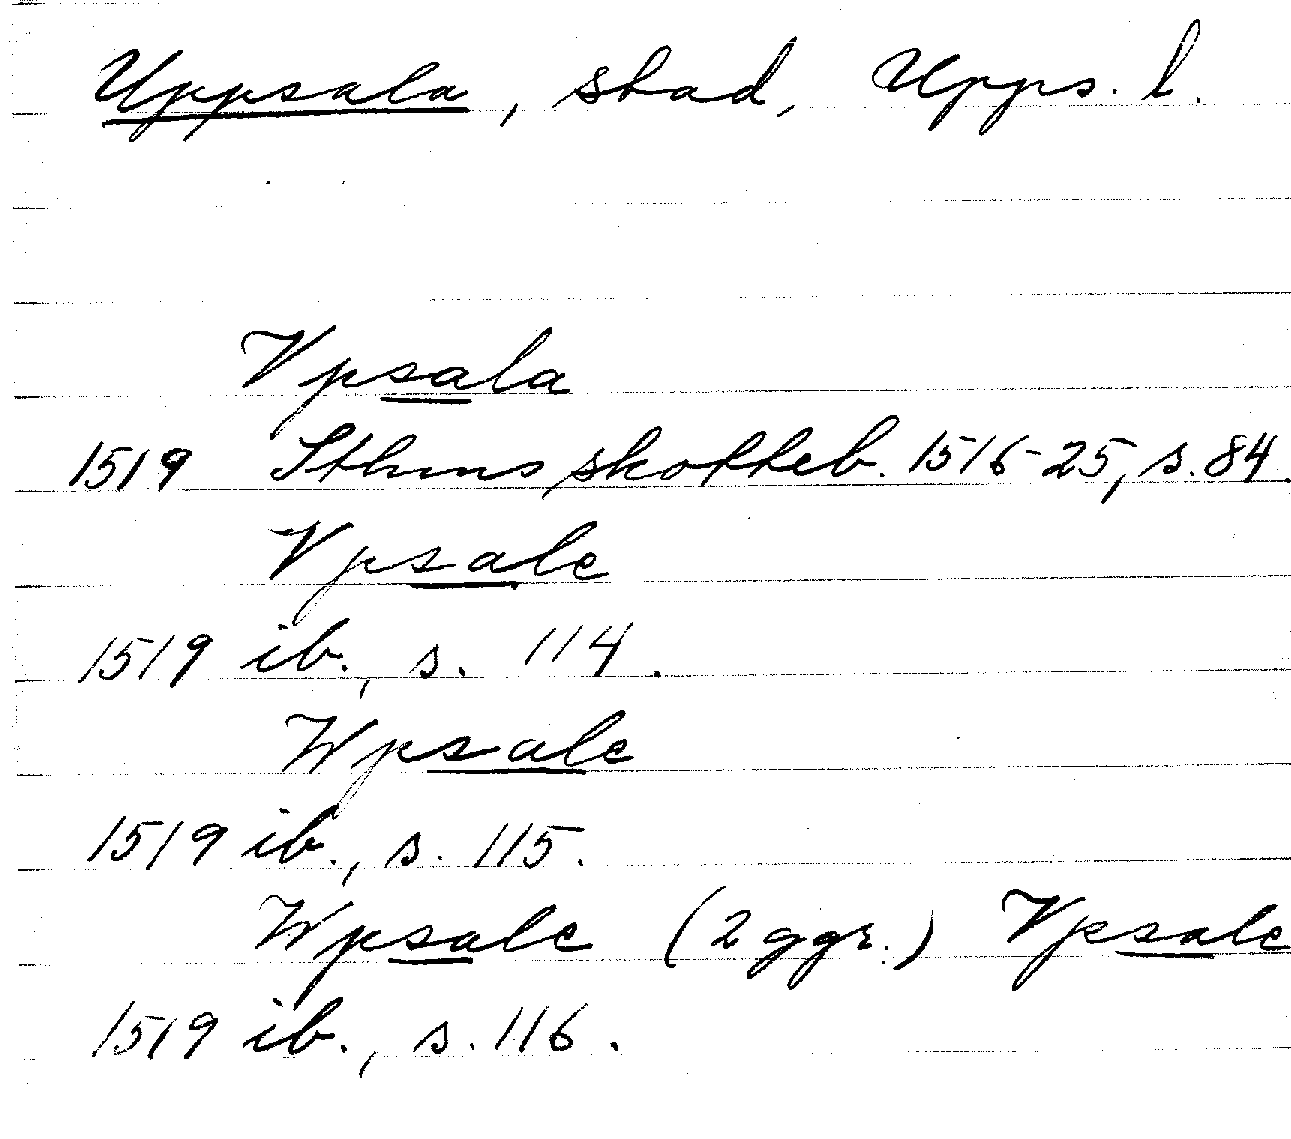 Uppsala, stad, Upps. l.
Vpsala
1519 Sthms skotteb. 1516-25, s. 84.
Vpsale
1519 ib., s. 114.
Wpsale
1519 ib., s. 115.
Wpsale (2 ggr.) Vpsale
1519 ib., s. 116.